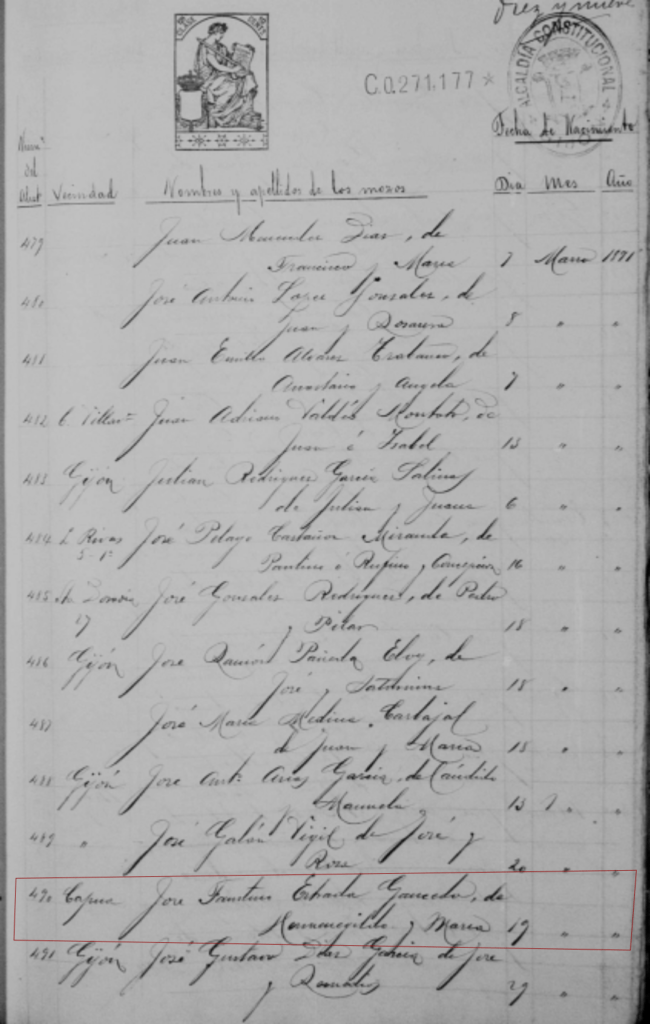 Diez y nueve
CLASE
CENTS
C.0.271.177 *
ALCALDÍA CONSTITUCIONAL
Fecha de Nacimiento
Núm.º
del
Alist.
Vecindad Nombres y apellidos de los mozos Dia Mes Año
479 Juan Menendez Diaz, de
Francisco y Maria 7 Marzo 1871
480 José Antonio Lopez Gonzalez, de
Juan y 8 " "
481 Juan Emilio Alvarez de
y Angela 7 " "
482 Juan Adriano Valdés de
Juan é Isabel 13 " "
483 Gijón Julian Rodriguez Garcia Salinas
de Julian y 6 " "
484 L. Rivas José Pelayo Castañon Miranda, de
5-1º Paulino ó Rufino y Concepcion 16 " "
485 José Gonzalez Rodriguez, de Pedro
27 y Pilar 18 " "
486 Gijón Jose Ramón de
José y Saturnina 18 " "
487 José Maria Medina Carbajal
de Juan y Maria 18 " "
488 Gijón Jose Ant.º Arias Garcia, de Cándido
Manuela 13 " "
489 " José Galán Vigil de José y
Rosa 20 " "
490 Capua Jose Faustino de
Hermenegildo y Maria 19 " "
491 Gijón José Gustavo Diaz Garcia de Jose
y 29 " "